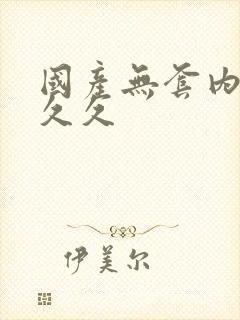 國產無套內
久久
伊美尔